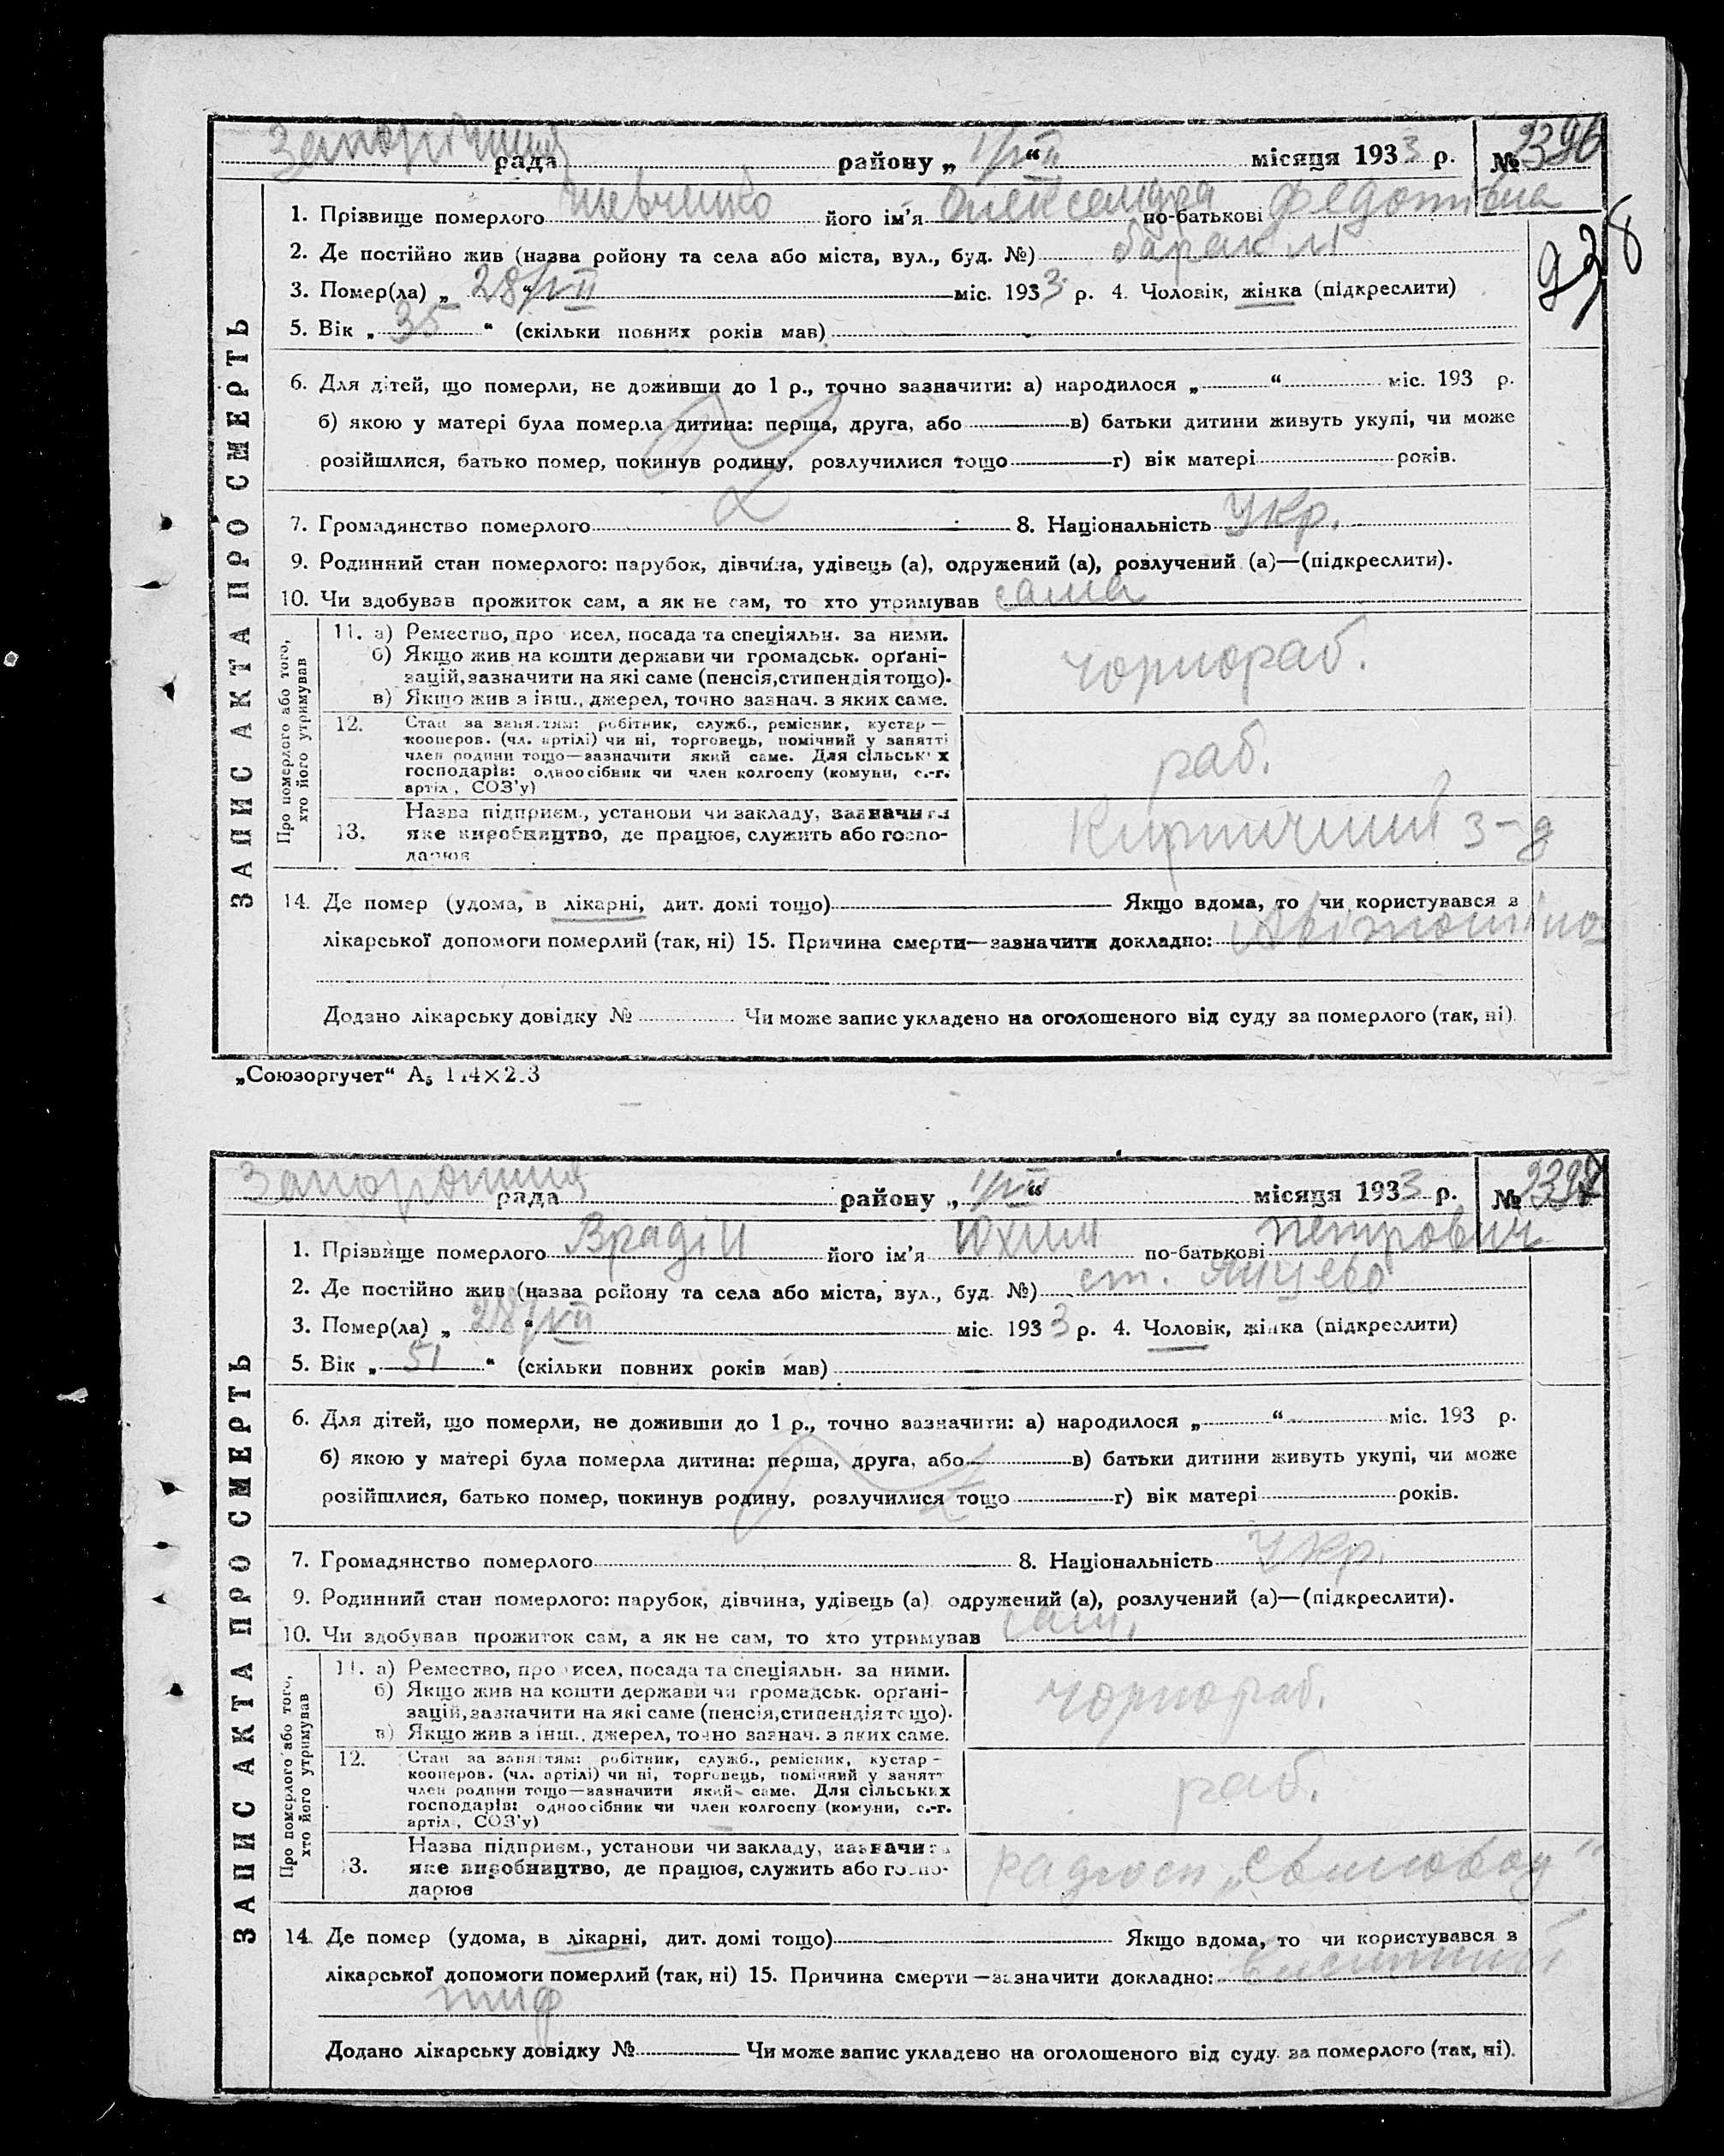 Запоріжська рада района „ 1/VII “ місяця 1933 р. № 2396
1. Прізвище померлого Шевченко його ім'я Олександра по-батькові Федотівна
2. Де постійно жив (назва ройону та села або міста, вул., буд. №) барак
3. Помер(ла) „ 28/VI “ міс. 1933 р. 4. Чоловік, жінка (підкреслити)
5. Вік „ 35 “ (скільки повних років мав)
938
6. Для дітей, що померли, не доживши до 1 р., точно зазначити: а) народилося „ “ міс. 193 р.
б) якою у матері була померла дитина: перша, друга, або в) батьки дитини живуть укупі, чи може
розійшлися, батько помер, покинув родину, розлучилися тощо г) вік матері років.
7. Громадянство померлого 8. Національність Укр.
9. Родинний стан померлого: парубок, дівчина, удівець (а), одружений (а), розлучений (а)—(підкреслити).
10. Чи здобував прожиток сам, а як не сам, то хто утримував сама
ЗАПИС АКТА ПРО СМЕРТЬ
Про померлого або того, хто його утримував
11. а) Ремество, про исел, посада та спеціяльн. за ними.
б) Якщо жив на кошти держави чи громадськ. орґані-
зацій, зазначити на які саме (пенсія, стипендія тощо).
в) Якщо жив з інш., джерел, точно зазнач. з яких саме.
чорнораб.
12. Стан за заняттям: робітник, служб., ремісник, кустар—
кооперов. (чл. артілі) чи ні, торговець, помічний у занятті
член родини тощо—зазначити який саме. Для сільських
господарів: одноосібник чи член колгоспу (комуни, с.-г.
артіл., СОЗ'у)
раб.
13. Назва підприєм., установи чи закладу, зазначити
яке виробництво, де працює, служить або госпо-
дарює
Кирпичний з-д
14. Де помер (удома, в лікарні, дит. домі тощо) Якщо вдома, то чи користувався з
лікарської допомоги померлий (так, ні) 15. Причина смерти—зазначити докладно: Авітоміно
Додано лікарську довідку № Чи може запис укладено на оголошеного від суду за померлого (так, ні).
„Союзоргучет“ А5 1 4×2 3
рада району „ 1/VII “ місяця 1933 р. № 2397
1. Прізвище померлого Врадій його ім'я Юхим по-батькові Петрович
2. Де постійно жив (назва ройону та села або міста, вул., буд. №) ст. Янцево
3. Помер(ла) „ 28/VI “ міс. 1933 р. 4. Чоловік, жінка (підкреслити)
5. Вік „ 51 “ (скільки повних років мав)
6. Для дітей, що померли, не доживши до 1 р., точно зазначити: а) народилося „ “ міс. 193 р.
б) якою у матері була померла дитина: перша, друга, або в) батьки дитини живуть укупі, чи може
розійшлися, батько помер, покинув родину, розлучилися тощо г) вік матері років.
7. Громадянство померлого 8. Національність Укр.
9. Родинний стан померлого: парубок, дівчина, удівець (а) одружений (а), розлучений (а)—(підкреслити).
10. Чи здобував прожиток сам, а як не сам, то хто утримував сам.
ЗАПИС АКТА ПРО СМЕРТЬ
Про померлого або того, хто його утримував
11. а) Ремество, про исел, посада та спеціяльн. за ними.
б) Якщо жив на кошти держави чи громадськ. орґані-
зацій, зазначити на які саме (пенсія, стипендія тощо).
в) Якщо жив з інш., джерел, точно зазнач. з яких саме.
чорнораб.
12. Стан за заняттям: робітник, служб., ремісник, кустар—
кооперов. (чл. артілі) чи ні, торговець, помічний у занятт
член родини тощо—зазначити який саме. Для сільських
господарів: одноосібник чи член колгоспу (комуни, с.-г.
артіл., СОЗ'у)
раб.
13. Назва підприєм., установи чи закладу, зазначить
яке виробництво, де працює, служить або госпо-
дарює
радгосп „Свиновод“
14. Де помер (удома, в лікарні, дит. домі тощо) Якщо вдома, то чи користувався з
лікарської допомоги померлий (так, ні) 15. Причина смерти—зазначити докладно: висипний
тиф
Додано лікарську довідку № Чи може запис укладено на оголошеного від суду за померлого (так, ні).